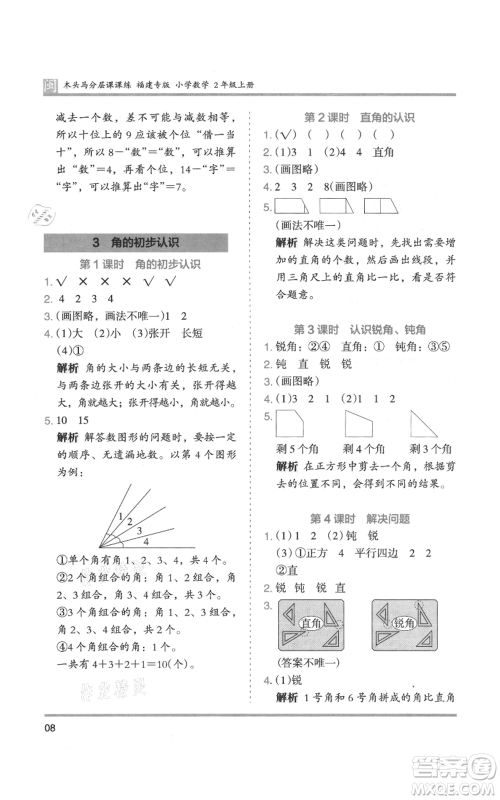 闽 木头马分层课课练 福建专版 小学数学 2年级上册
减去一个数,差不可能与减数相等,
所以十位上的9应该被个位“借一当
十”,则8-“数”=“数”,所以
“数”=4,再看个位,14-“字”=
“字”,所以“字”=7。
3 角的初步认识
第1课时 角的初步认识
1. √ × × × √
2. 4 2 3 4
3. (画图略,画法不唯一) 1 2
4. (1)大 (2)小 (3)张开 长短
(4)①
解析 角的大小与两条边的长短无关,
与两条边张开的大小有关,张开得越
大,角越大,张开得越小,角越小。
5. 10 15
解析 解答数图形的问题时,要按一定
的顺序、无遗漏地数。以第4个图形
为例:
1
2
3
4
①单个角有角1、2、3、4,共4个。
②2个角组合的角:角1、2组合,角
2、3组合,角3、4组合,共3个。
③3个角组合的角:角1、2、3组合,
角2、3、4组合,共2个。
④4个角组合的角:角1、2、3、4
组合,共1个。
一共有4+3+2+1=10(个)。
第2课时 直角的认识
1. (√)( )( )(√)
2. (1)3 1 (2)4 4 直角
3. (画图略)
4. 2 3 2 8(画图略)
5.
(画法不唯一)
解析 解决这类问题时,可先数出已有
直角的个数,然后尝试着画一画,并
用三角尺上的直角比一比,看看是否
符合题意。
第3课时 认识锐角、钝角
1. 锐角:②④ 直角:① 钝角:③⑤
2. 钝 直 锐 锐
3. (画图略)
4. (1)3 2 1 (2)1 1 2
5.
剩5个角 剩4个角 剩3个角
解析 在正方形中剪去一个角,剪去角
的位置不同,剩下的角的个数也不同。
第4课时 解决问题
1. (1)1 2 (2)钝 锐
(3)①正方 4 平行四边 2 2
②直
2. 锐 钝 锐 直
3.
直角
锐角
(答案不唯一)
4. (1)锐
解析 1号角和6号角拼成的角比直角
08
答案圈